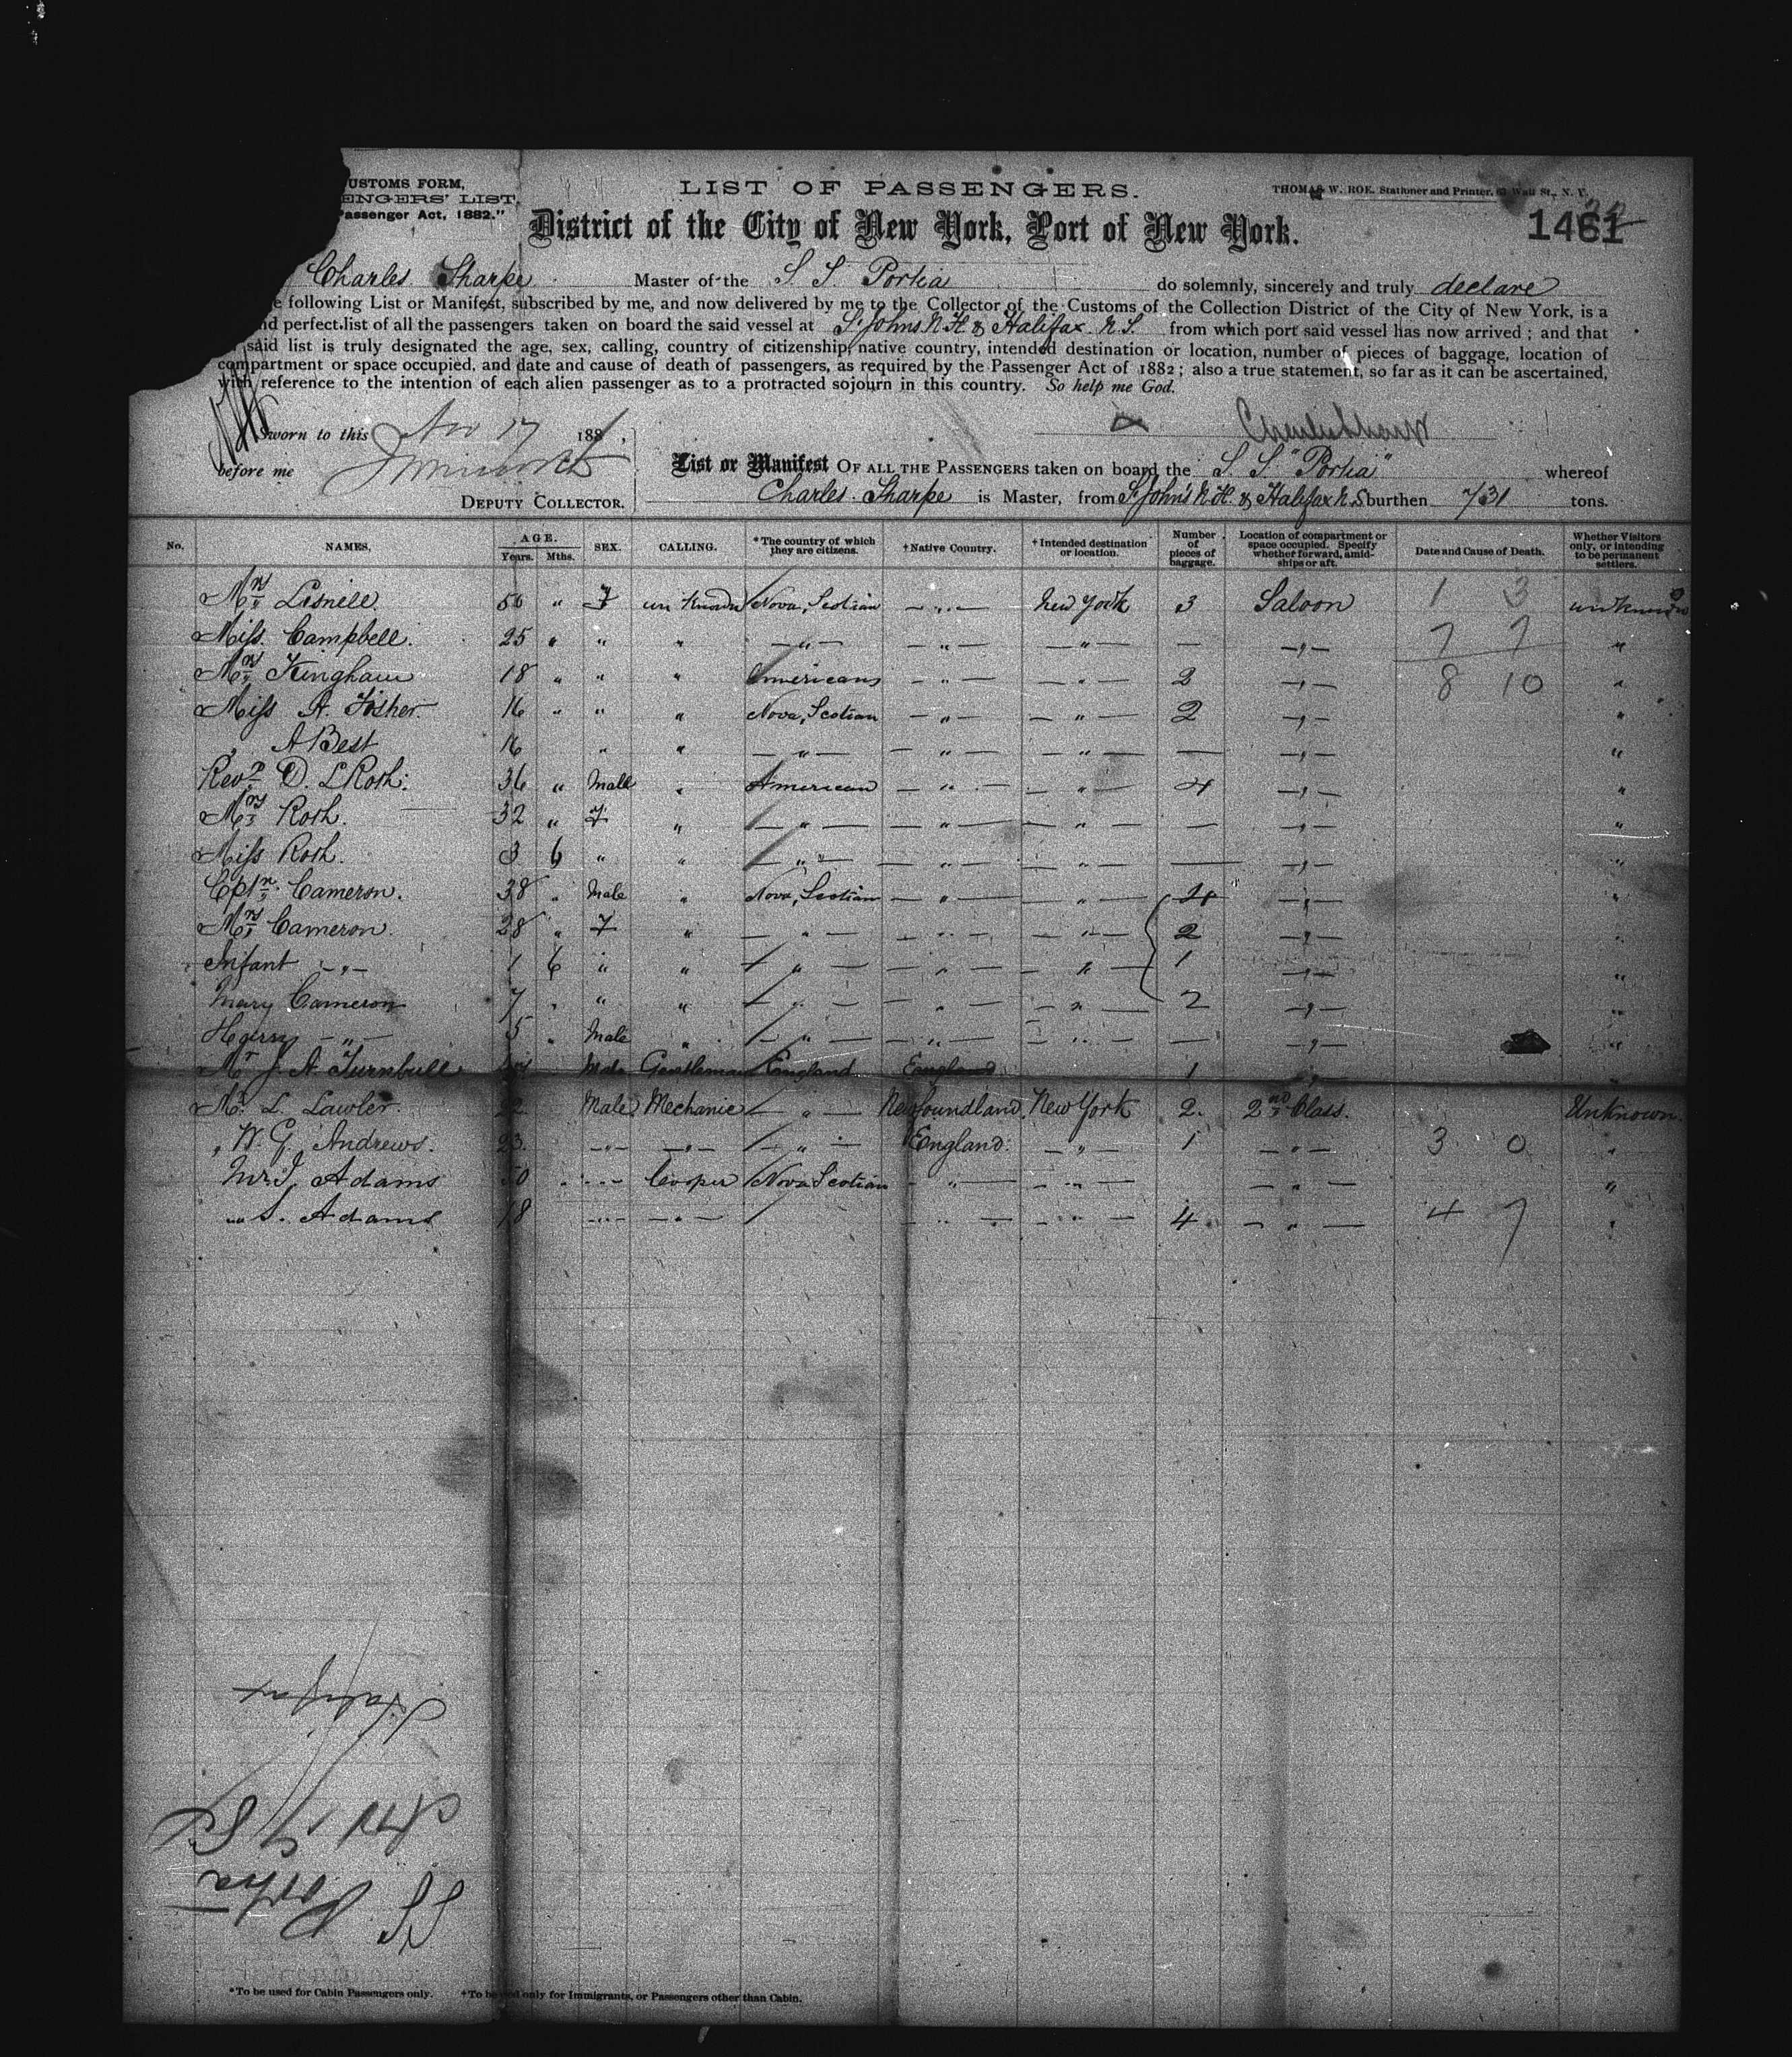 USTOMS FORM,
ENGERS' LIST,
Passenger Act, 1882."
LIST OF PASSENGERS.
THOMAS W. ROE. Stationer and Printer, 63 Wall St., N. Y.
District of the City of New York, Port of New York.
1461
Charles Sharpe Master of the S. S. Portia do solemnly, sincerely and truly declare
e following List or Manifest, subscribed by me, and now delivered by me to the Collector of the Customs of the Collection District of the City of New York, is a
nd perfect list of all the passengers taken on board the said vessel at St Johns N. F. & Halifax N. S. from which port said vessel has now arrived; and that
said list is truly designated the age, sex, calling, country of citizenship, native country, intended destination or location, number of pieces of baggage, location of
compartment or space occupied, and date and cause of death of passengers, as required by the Passenger Act of 1882; also a true statement, so far as it can be ascertained,
with reference to the intention of each alien passenger as to a protracted sojourn in this country. So help me God.
Sworn to this Nov 17 188
Charles Sharpe
before me
DEPUTY COLLECTOR.
List or Manifest OF ALL THE PASSENGERS taken on board the S. S. "Portia" whereof
Charles Sharpe is Master, from St John's N. F. & Halifax N. S. burthen 731 tons.
No. NAMES. AGE. Years. Mths. SEX. CALLING. *The country of which they are citizens. †Native Country. †Intended destination or location. Number of pieces of baggage. Location of compartment or space occupied. Specify whether forward, amidships or aft. Date and Cause of Death. Whether Visitors only, or intending to be permanent settlers.
Mrs Lisnell. 50 " F un Known Nova, Scotian — " — New York 3 Saloon 1 3 unknown
Miss. Campbell. 25 " " " — " — — " — — " — — — " — 7 7 "
Mrs Kingham 18 " " " Americans — " — — " — 2 — " — 8 10 "
Miss A. Fisher. 16 " " " Nova, Scotian — " — — " — 2 — " — "
" A Best 16 " " — " — — " — — " — — — " — "
Revd D. L Rosh. 36 " Male " American — " — — " — 4 — " — "
Mrs Rosh. 32 " F " — " — — " — — " — — — " — "
Miss Rosh. 3 6 " " — " — — " — — " — — — " — "
Cptn. Cameron. 38 " Male " Nova, Scotian — " — — " — 4 — " — "
Mrs Cameron. 28 " F " — " — — " — — " — 2 — " — "
Infant — " — 1 6 " " — " — — " — — " — 1 — " — "
Mary Cameron 7 " " " — " — — " — — " — 2 — " — "
— " — 5 " Male " — " — — " — — " — — — " — "
Mr J. A. Turnbull Male Gentleman England England 1 "
Mr. L. Lawler. 22 Male Mechanic — " — Newfoundland. New York 2. 2nd Class. Unknown.
" W. G. Andrews. 23. — " — — " — — " — England. — " — 1 — " — 3 0 "
Mr J, Adams 50 " — " — Cooper Nova Scotian — " — — " — — " — "
" S. Adams 18 — " — — " — — " — — " — 4 — " — 4 7 "
Halifax
Nov 17
SS Portia
*To be used for Cabin Passengers only. †To be used only for Immigrants, or Passengers other than Cabin.